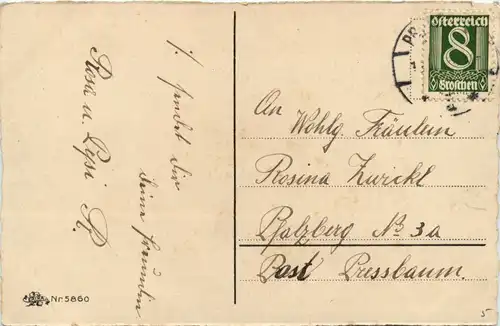 sendet dir
deine Freundin
Rosa u. Pepi R.
An
Wohlg. Fräulein
Rosina Zwickl
Pfalzberg No 3a
Post Pressbaum.
Österreich
8
Groschen
PR
Nr. 5860
5